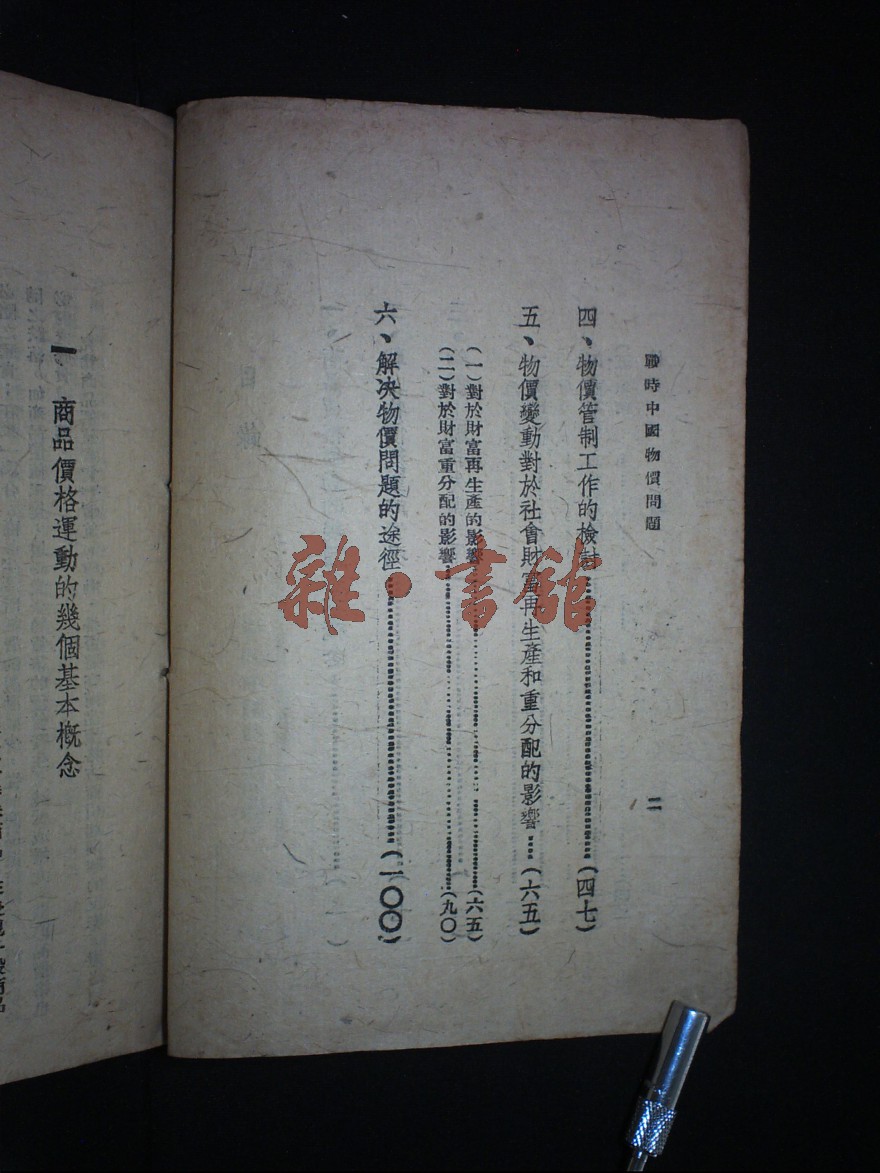 戰時中國物價問題
二
四、物價管制工作的檢討……(四七)
五、物價變動對於社會財富再生產和重分配的影響……(六五)
(一)對於財富再生產的影響……(六五)
(二)對於財富重分配的影響……(九〇)
六、解決物價問題的途徑……(一〇〇)
一 商品價格運動的幾個基本概念
雜·書館